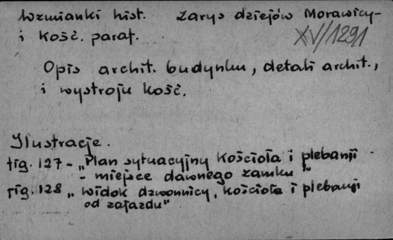 Wzmianki hist. Zarys dziejów Morawicy-
i Kość. paraf.
XV/1291
Opis archit. budynku, detali archit.,
i wystroju kość.
Ilustracje.
fig. 127 - „Plan sytuacyjny Kościoła i plebanji
- miejsce dawnego zamku"
fig. 128 „Widok dzwonnicy, kościoła i plebanji
od zajazdu"